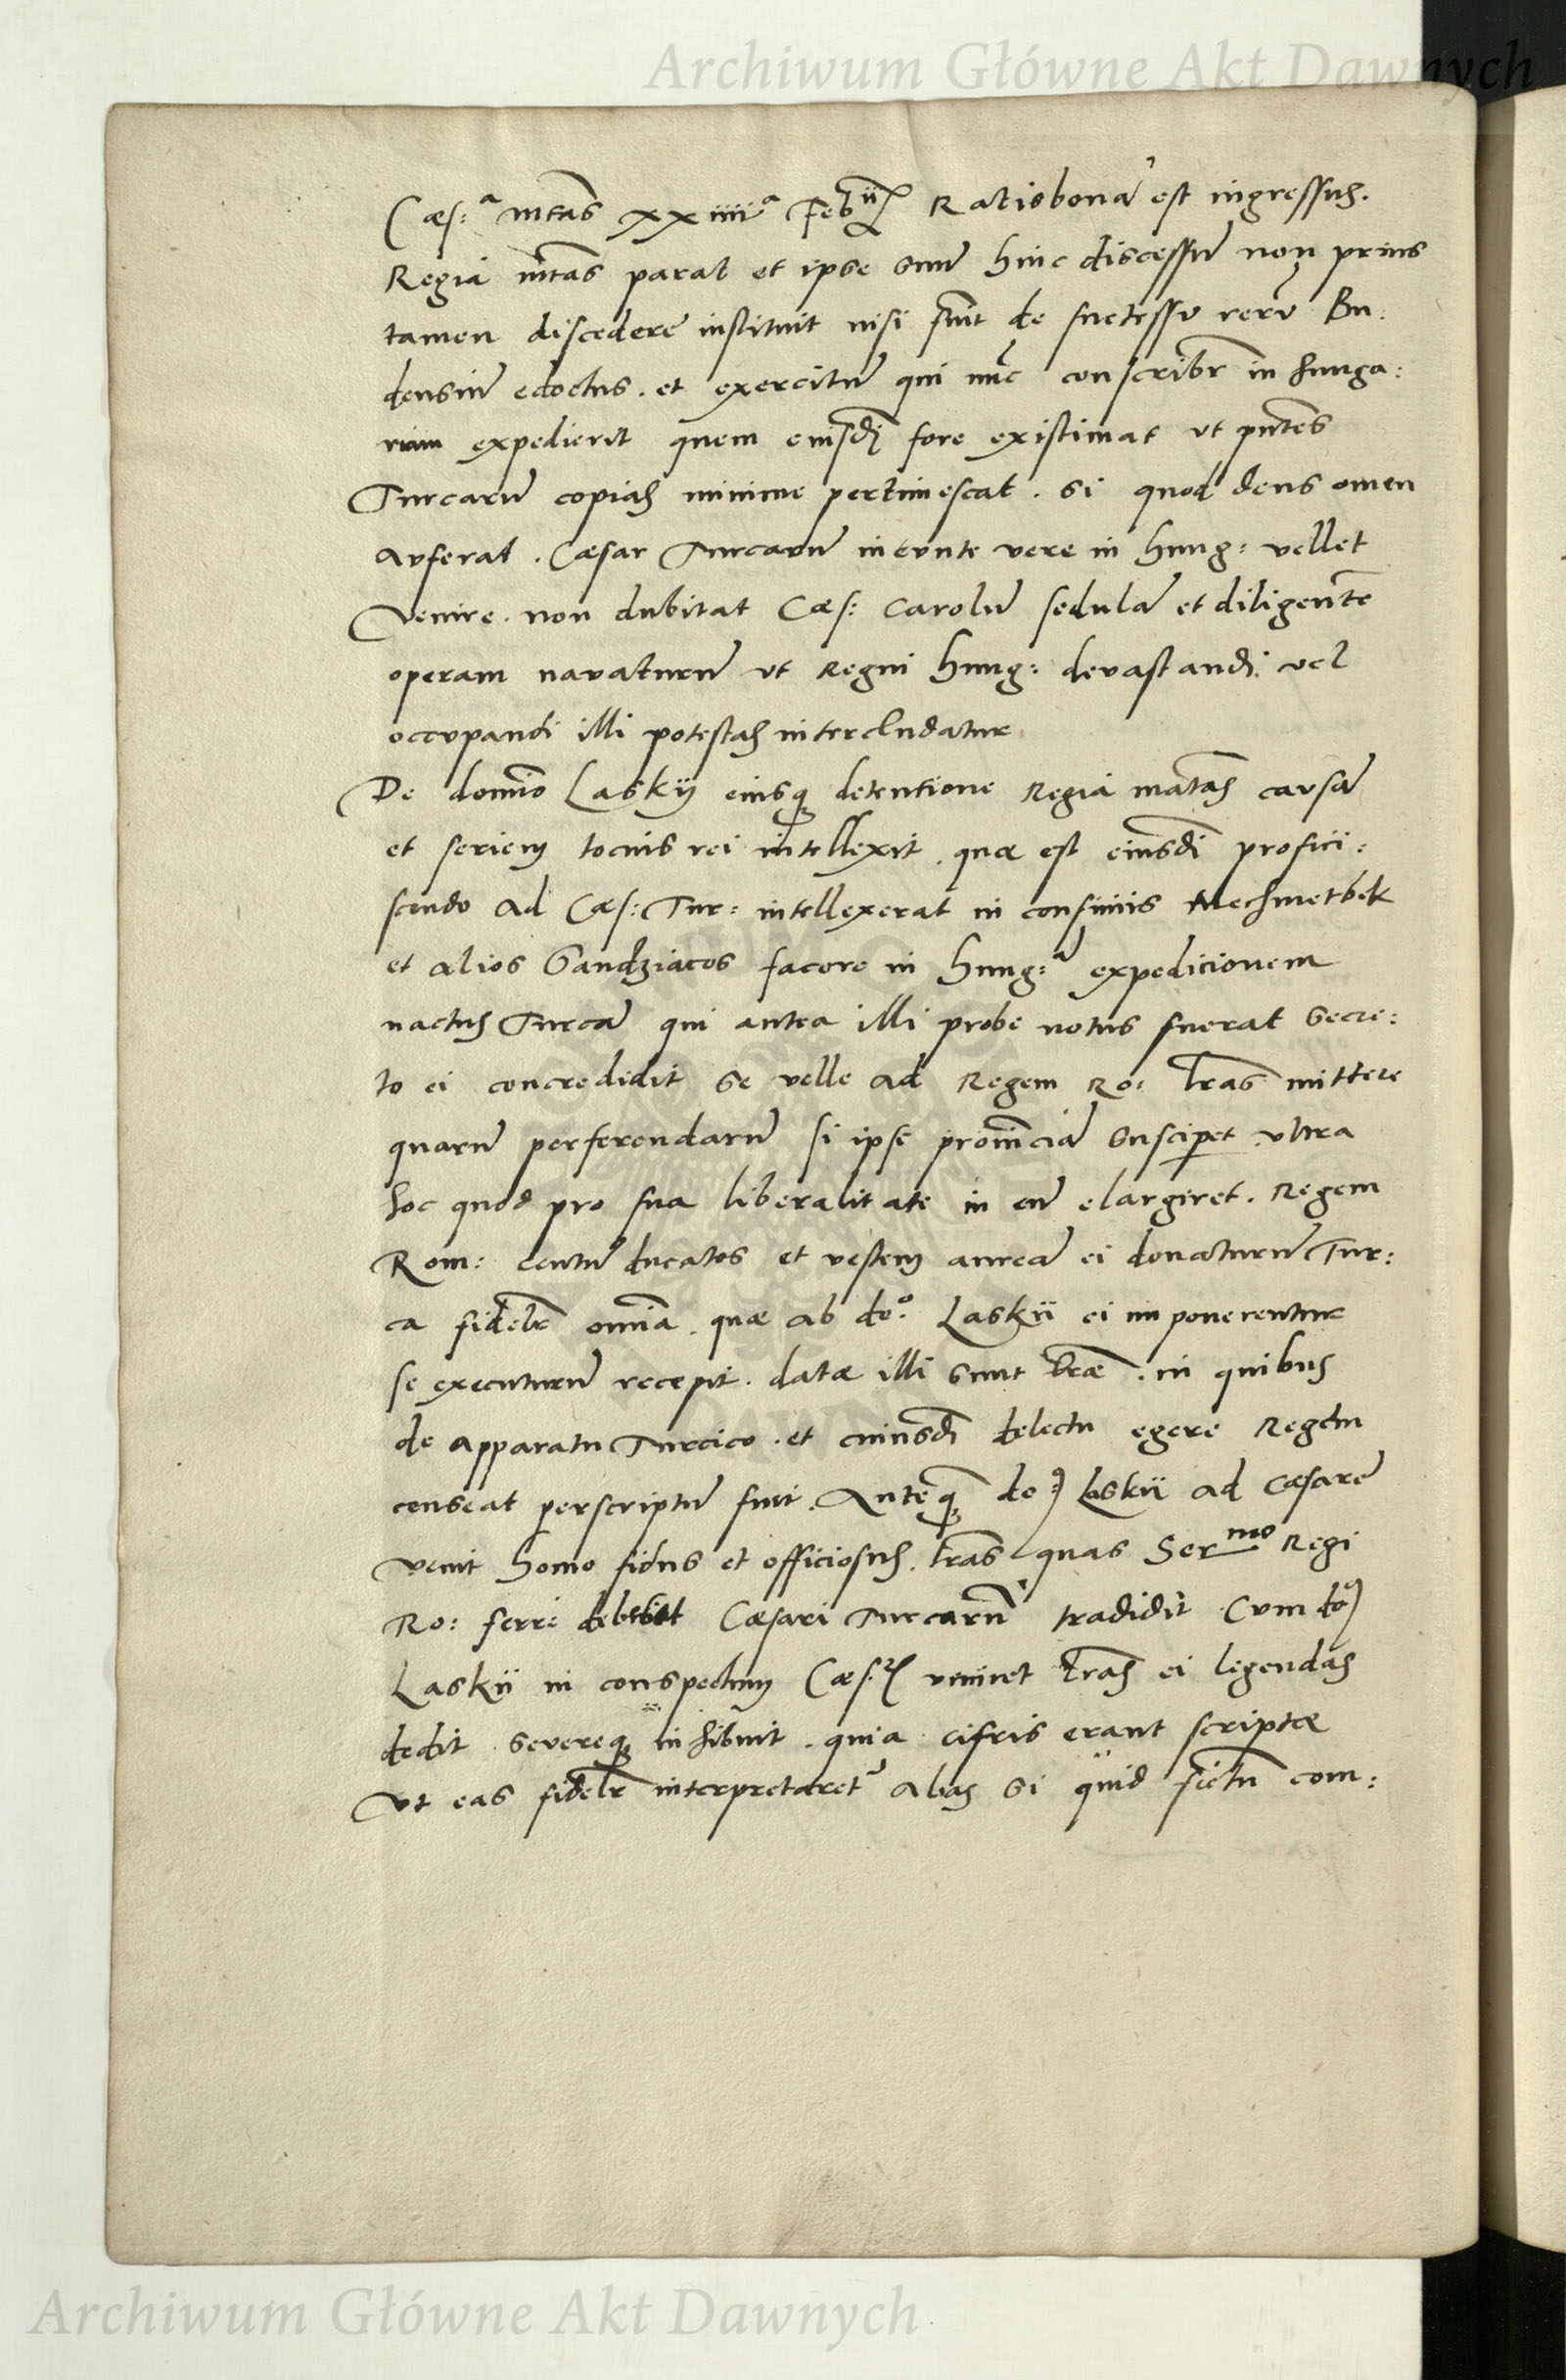 Archiwum Główne Akt Dawnych
Cæs:ᵃ mtas xxiiiiᵃ Feb Ratisbonā est ingressus.
Regia mtas parat et ipse suū hinc discessū non prius
tamen discedere instituit nisi fuerit de successu rerū Bu:
densiū edoctus. et exercitū qui nūc conscribr in hunga:
riam expedierit quem eiusdi fore existimat ut pntes
Turcarū copias minime pertimescat. Si quod deus omen
auferat. Cæsar Turcarū ineunte vere in Hung: vellet
Venire. non dubitat Cæs: Carolū sedulā et diligentē
operam navaturū ut Regni Hung: devastandi vel
occupandi illi potestas intercludatur
De domino Laskÿ eiusq detentione Regia matas causā
et seriem tocius rei intellexit. quæ est eiusdi profici:
scendo ad Cæs: Tur: intellexerat in confiniis Mechmetbek
et alios Sandziacos facere in Hung:ā expedicionem
nactus Turcā qui antea illi probe notus fuerat secre:
to ei concredidit se velle ad Regem Ro: lras mittere
quarū perferendarū si ipse provinciā susciperet ultra
hoc quod pro sua liberalitate in eū elargiret. Regem
Rom: centū ducatos et vestem aureā ei donaturū Tur:
ca fidelr omīa. quæ ab do:º Laskii ei imponerentur
se executurū recepit. datæ illi sunt lræ. in quibus
de apparatu Turcico. et cuiusdi delectu egere Regem
censeat perscriptū fuit. Anteq do:⁹ Laskii ad Cæsarē
venit homo fidus et officiosus. lras quas Serᵐᵒ Regi
Ro: ferre debebat Cæsari Turcarū tradidit. Cum do⁹
Laskii in conspectum Cæs: veniret lras ei legendas
dedit. severeq inhibuit. quia cifris erant scriptæ
ut eas fidelr interpretaret alias si quid fictū com:
Archiwum Główne Akt Dawnych